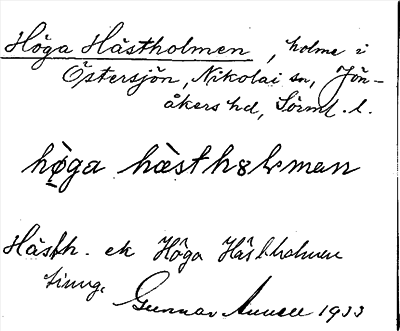 Höga Hästholmen, holme i
Östersjön, Nikolai sn, Jön-
åkers hd, Sörml. l.
hø̀ga hæ̀sthɷlman
Hästh. ek Höga Hästholmen
Gunnar 1933